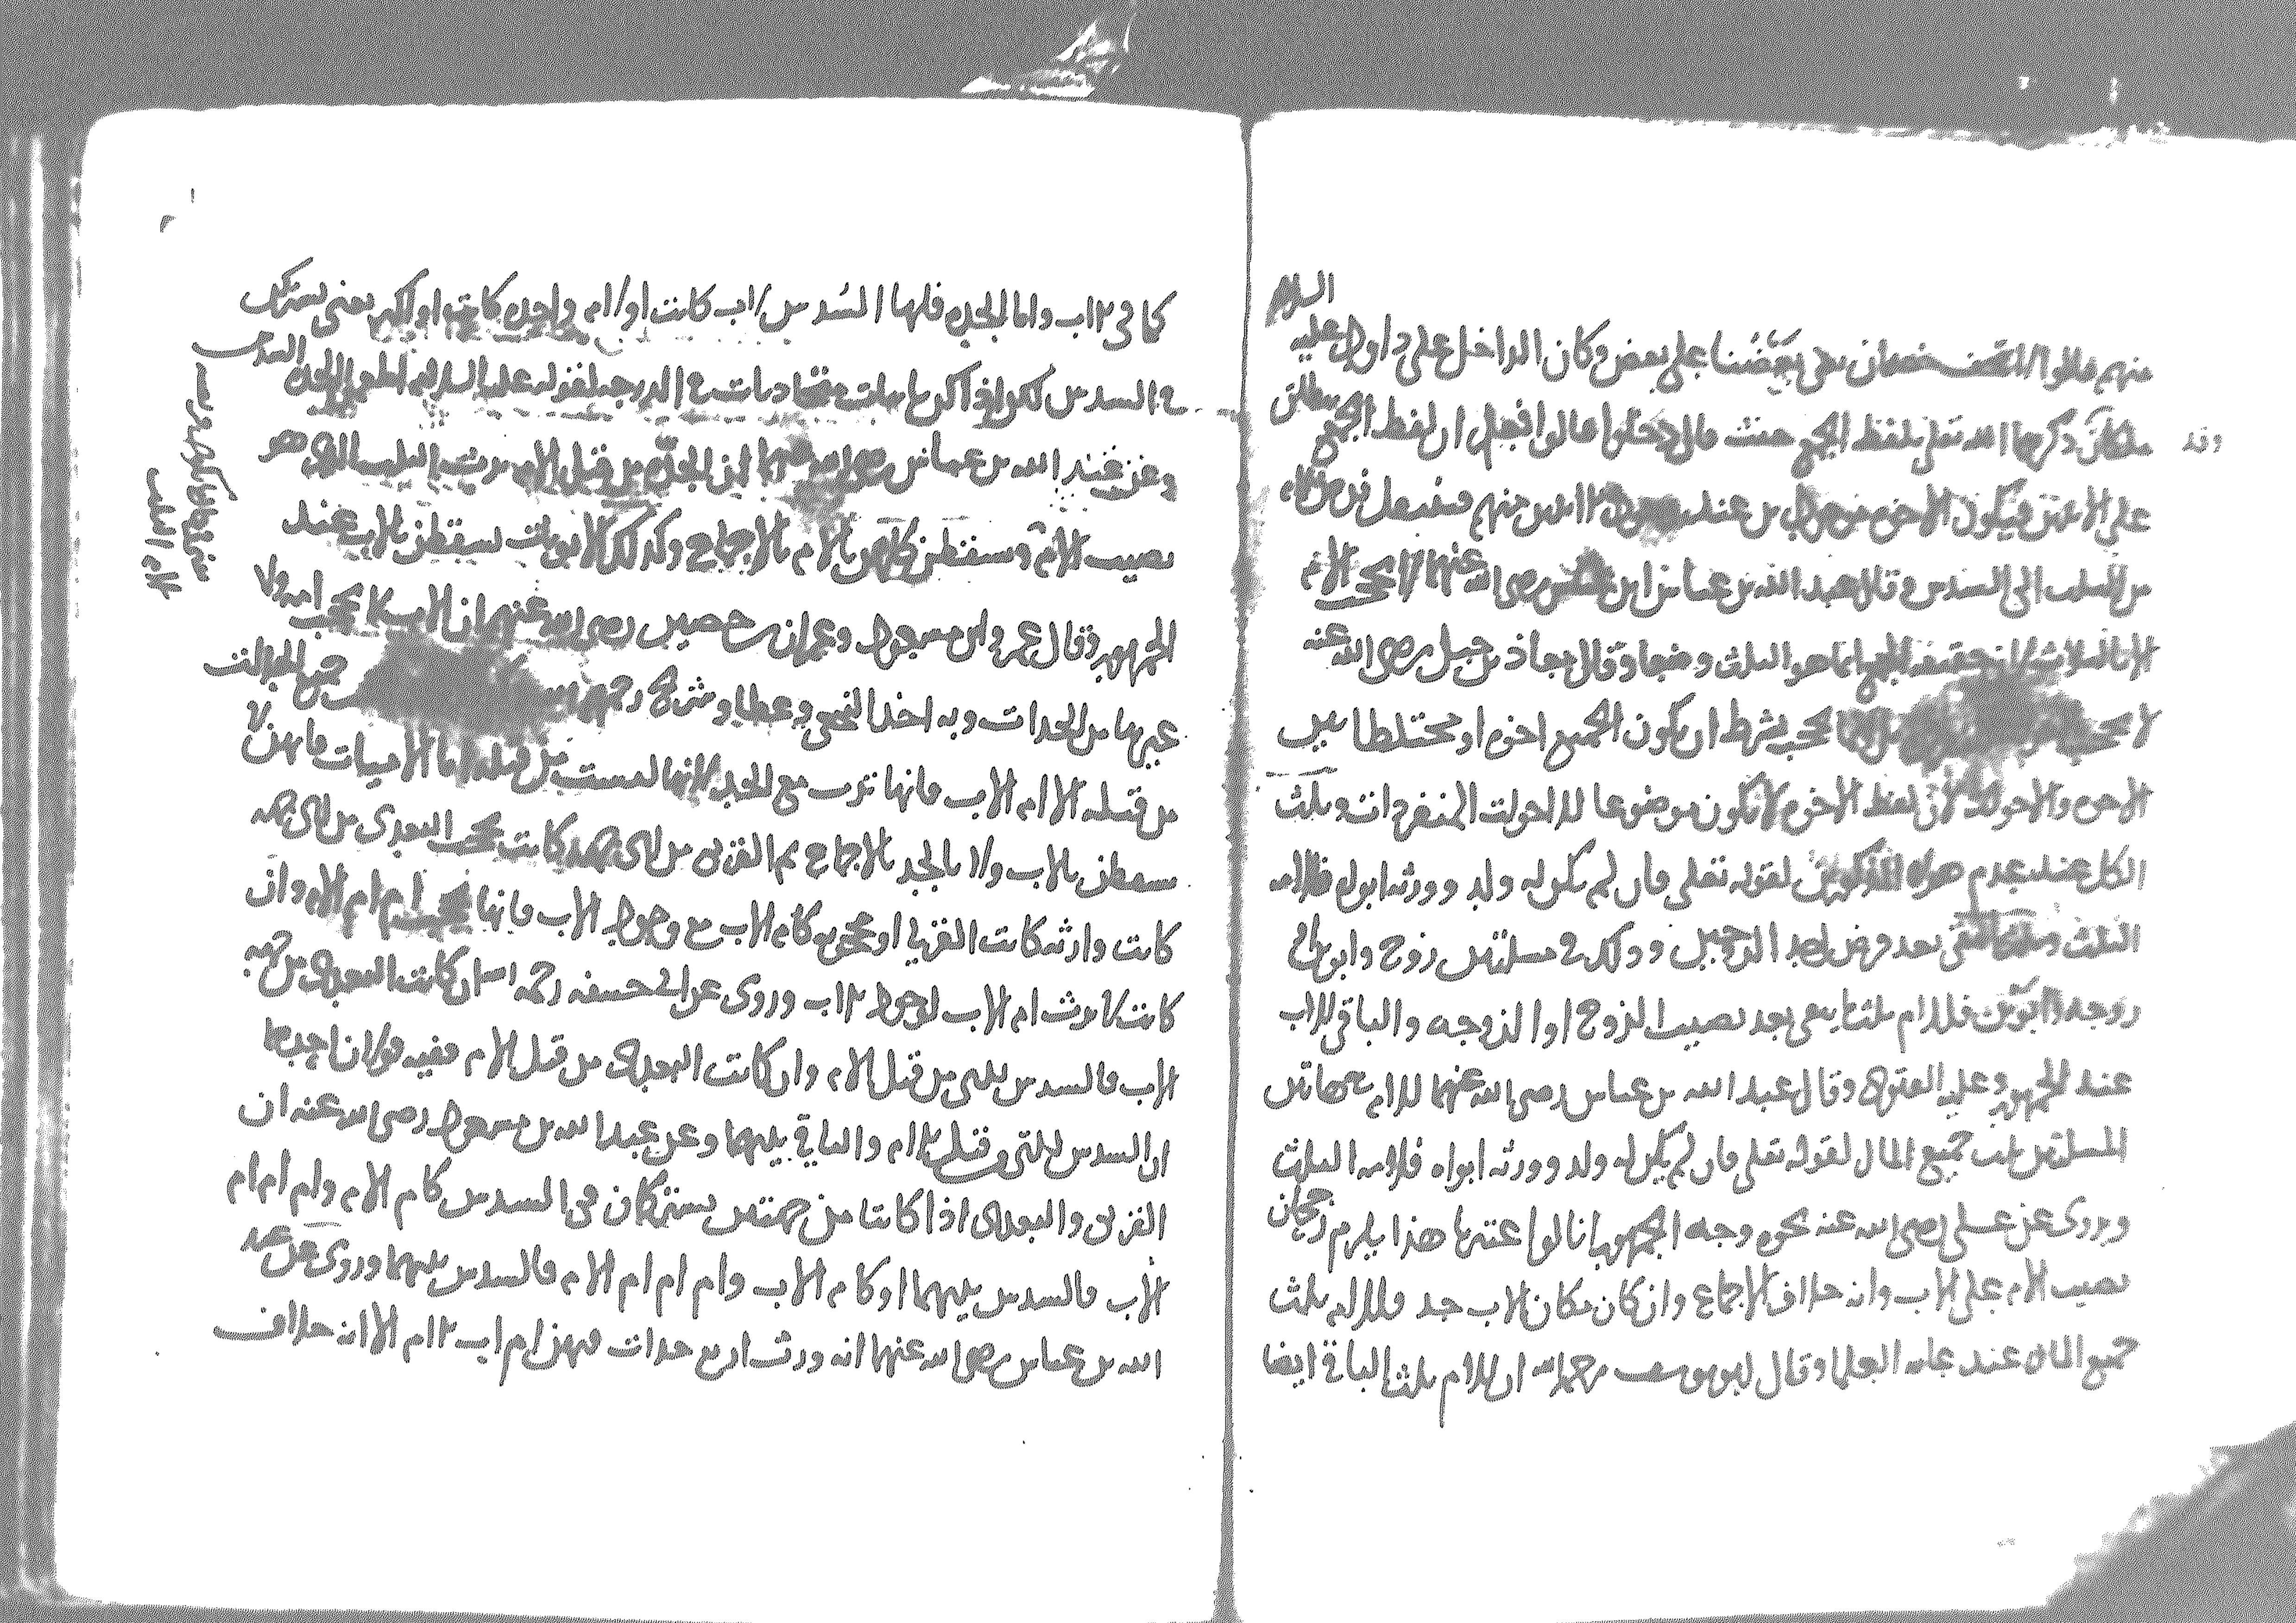 منهم قالوا لا تخف خصمان بغى بعضنا على بعض وكان الداخل على داود عليه السلام
ملكان ذكرهما الله تعلى بلفظ الجمع حيث قال دخلوا قالوا فجعل ان لفظ الجمع يطلق
على الاثنين فيكون الاخوة
من الثلث الى السدس وقال عبد الله بن عباس رضى الله عنهما لا يحجب الام
الا بالثلاث لان حقيقة الجمع انما هو الثلث وضعا وقال معاذ بن جبل رضى الله عنه
لا يحجب بشرط ان يكون الجميع اخوة او مختلطا بين
الاخوة والاخوات لان لفظ الاخوة لا يكون موضوعا للاخوات المنفردات وثلث
الكل عند عدم هولاء المذكورين لقوله تعلى فان لم يكن له ولد وورثه ابواه فلامه
الثلث وثلث ما بقى بعد فرض احد الزوجين وذلك فى مسئلتين زوج وابوين او
زوجة وابوين فللام ثلث ما يبقى بعد نصيب الزوج او الزوجه والباقى للاب
عند الجمهور وعليه الفتوى وقال عبد الله بن عباس رضى الله عنهما للام فى هاتين
المسئلتين ثلث جميع المال لقوله تعلى فان لم يكن له ولد وورثه ابواه فلامه الثلث
ويروى عن على رضى الله عنه نحوه وجه الجمهور انا لو اعتبرنا هذا يلزم رجحان
نصيب الام على الاب وانه خلاف الاجماع وان كان مكان الاب جد فللام ثلث
جميع المال عند عامه العلما وقال ابو يوسف رحمه الله ان للام ثلث الباقى ايضا
كما فى الاب واما الجده فلها السدس لاب كانت او لام واحده كانت او اكثر يعنى يشتركن
فى السدس لكن اذا كن ثابتات متحاذيات فى الدرجه لقوله عليه السلام اطعموا الجده السدس
وعن عبد الله بن عباس رضى الله عنهما ان الجدة من قبل الام ترث الثلث الذى هو
نصيب الام ويسقطن كلهن بالام بالاجماع وكذلك الابويات يسقطن بالاب عند
الجمهور وقال عمر وابن مسعود وعمران بن حصين رضى الله عنهم ان الاب لا يحجب امه ولا
غيرها من الجدات وبه اخذ النخعى وعطا وشريح رحمهم الله
من قبله الا ام الاب فانها ترث مع الجد لانها ليست من قبله اما الاميات فانهن لا
يسقطن بالاب ولا بالجد بالاجماع ثم القربى من اى جهه كانت تحجب البعدى من اى جهه
كانت وارثه كانت القربى او محجوبه كام الاب مع وجود الاب فانها تحجب ام ام الام وان
كانت لا ترث ام الاب لوجود الاب وروى عن ابى حنيفه رحمه الله ان كانت البعدى من جهه
الاب فالسدس للتى من قبل الام وان كانت البعدى من قبل الام ففيه قولان احدهما
ان السدس للتى من قبل الام والباقى بينهما وعن عبد الله بن مسعود رضى الله عنه ان
القربى والبعدى اذا كانتا من جهتين يشتركان فى السدس كام الام وام ام ام
الاب فالسدس بينهما او كام الاب وام ام ام الام فالسدس بينهما وروى عن عبد
الله بن عباس رضى الله عنهما انه ورث اربع جدات فيهن ام اب الام الا انه خلاف